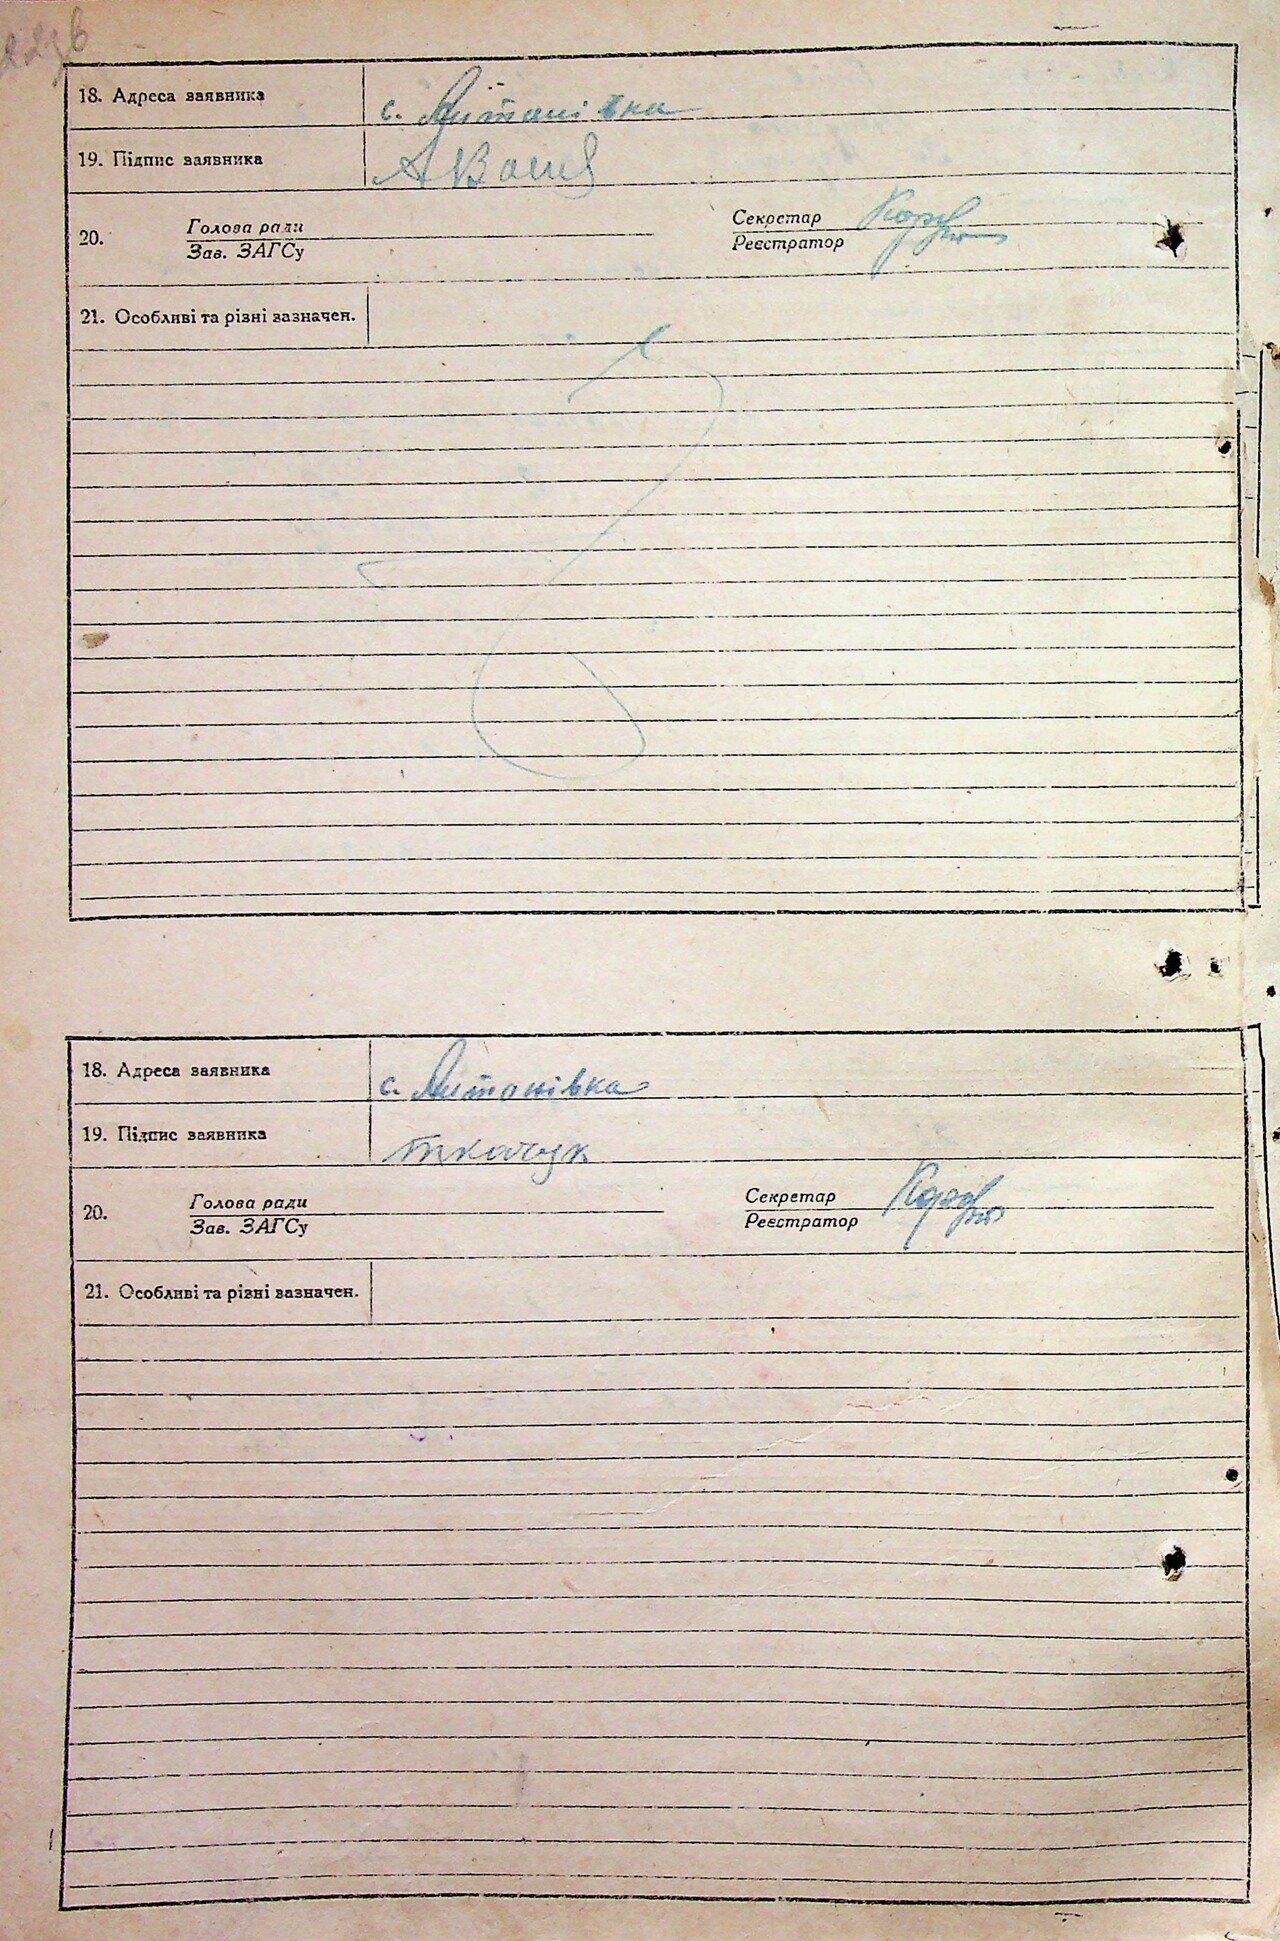 18. Адреса заявника с. Антонівка
19. Підпис заявника
20. Голова ради Секретар
Зав. ЗАГСу Реєстратор
21. Особливі та різні зазначен.
18. Адреса заявника с. Антонівка
19. Підпис заявника ткачук
20. Голова ради Секретар
Зав. ЗАГСу Реєстратор
21. Особливі та різні зазначен.